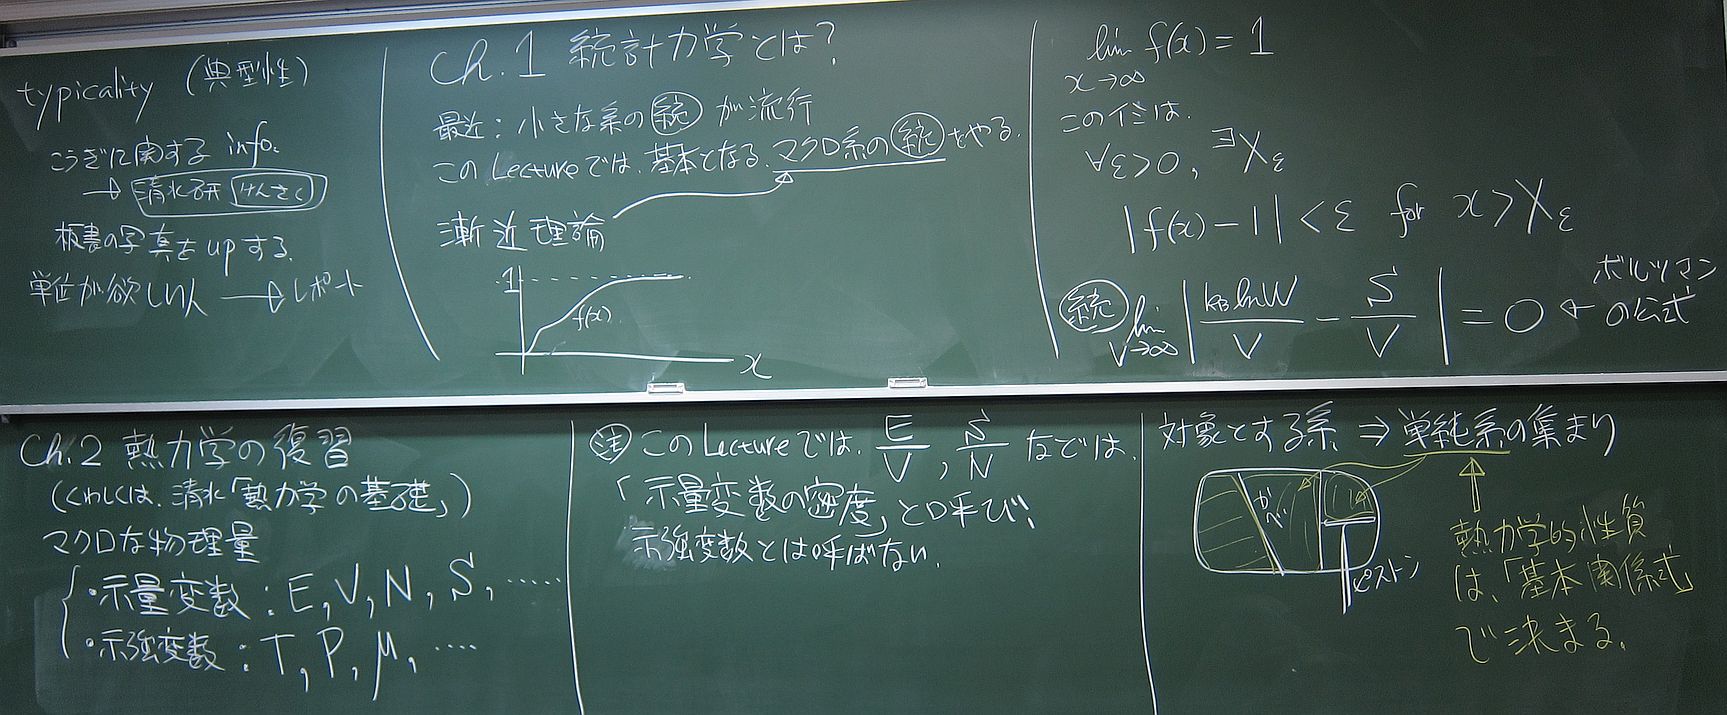 typicality (典型性)
こうぎに関する info.
→ 清水研 けんさく
板書の写真を up する.
単位が欲しい人 → レポート
Ch.1 統計力学とは?
最近: 小さな系の統が流行
この Lecture では、基本となる、マクロ系の統をやる.
漸近理論
1
f(x)
x
lim f(x) = 1
x→∞
このイミは.
∀ε>0, ∃Xε
|f(x)-1| < ε for x > Xε
統 lim | kB ln W / V - S / V | = 0 ← ボルツマンの公式
V→∞
Ch.2 熱力学の復習
(くわしくは、清水「熱力学の基礎」)
マクロな物理量
・示量変数 : E, V, N, S, ……
・示強変数 : T, P, μ, ……
注 この Lecture では、 E/V, S/N などは、
「示量変数の密度」と呼び、
示強変数とは呼ばない.
対象とする系 ⇒ 単純系の集まり
かべ
ピストン
熱力学的性質
は、「基本関係式」
で決まる.